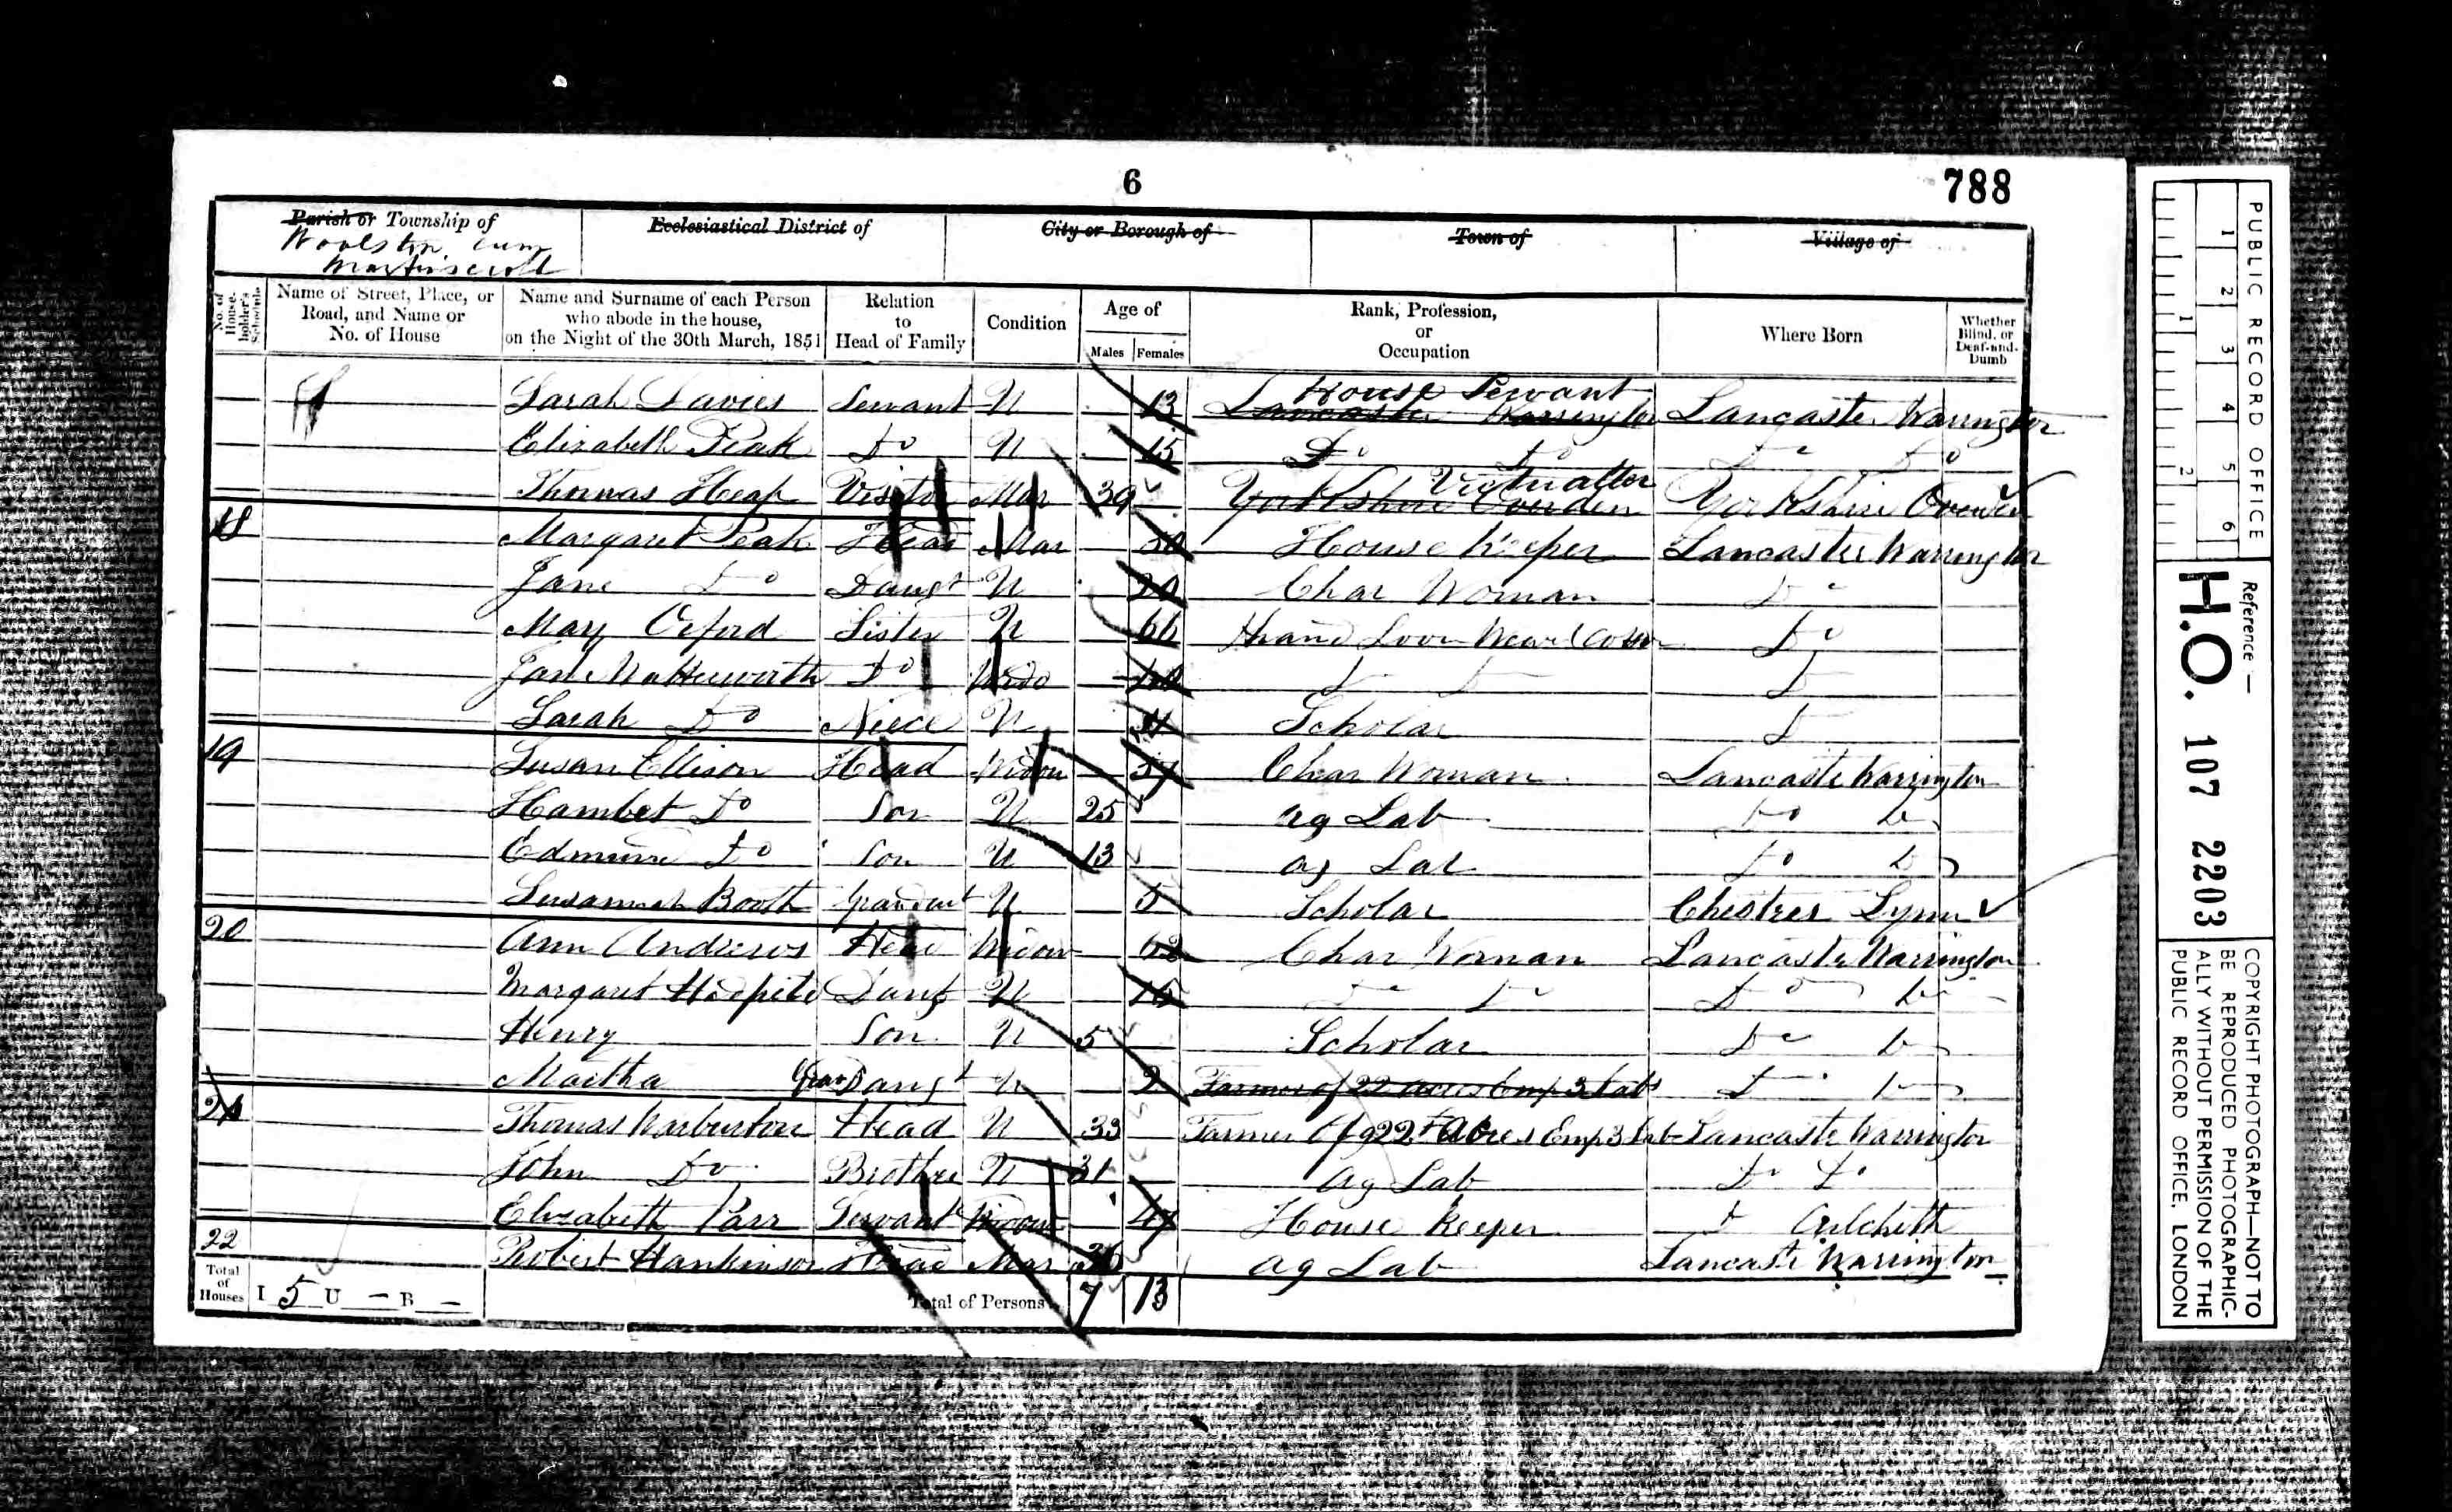 6
788
Parish or Township of
Woolston cum
Martinscroft
Ecclesiastical District of
City or Borough of
Town of
Village of
No. of House-holder's Schedule
Name of Street, Place, or Road, and Name or No. of House
Name and Surname of each Person who abode in the house, on the Night of the 30th March, 1851
Relation to Head of Family
Condition
Age of
Males Females
Rank, Profession, or Occupation
Where Born
Whether Blind, or Deaf-and-Dumb
Sarah Davies Servant U 13 Lancaster Warrington House Servant Lancaster Warrington
Elizabeth Peak Do U 15 Do Do Do Do
Thomas Heap Visitor Mar 39 Yorkshire Ovenden Victualler Yorkshire Ovenden
18 Margaret Peak Head Mar House Keeper Lancaster Warrington
Jane Do Daugt U 20 Char Woman Do
Mary Oxford Sister U 66 Hand Loom Weav Cotton Do
Jane Do Wido Do Do Do
Sarah Do Niece U Scholar Do
19 Susan Ellison Head Widow 57 Char Woman Lancaste Warrington
Hambet Do Son U 25 Ag Lab Do Do
Edmund Do Son U 13 Ag Lab Do Do
Susannah Booth Grandaut U 5 Scholar Chestrer Lymm
20 Ann Andrews Head Widow 62 Char Woman Lancaste Warrington
Margaret Daug U 15 Do Do Do Do
Henry Son U 5 Scholar Do Do
Martha Grand Daugt U 2 Farmer of 22 acres Emp 3 Labs Do Do
21 Thomas Warburton Head U 33 Farmer Of 22 Acres Emp 3 Lab Lancaste Warrington
John Do Brother U 31 Ag Lab Do Do
Elizabeth Parr Servant Widow 47 House Keeper Do Culcheth
22 Robert Hankinson Head Mar 36 Ag Lab Lancaste Warrington
Total of Houses I 5 U – B –
Total of Persons 7 13
PUBLIC RECORD OFFICE
1 2 3 4 5 6
1 2
Reference —
H.O. 107 2203
COPYRIGHT PHOTOGRAPH—NOT TO BE REPRODUCED PHOTOGRAPHIC-ALLY WITHOUT PERMISSION OF THE PUBLIC RECORD OFFICE, LONDON